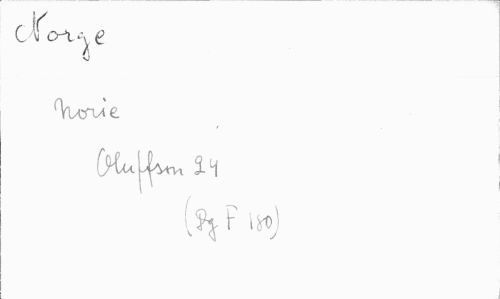 Norge
Norie
Oluffson 24
(Bg F 180)